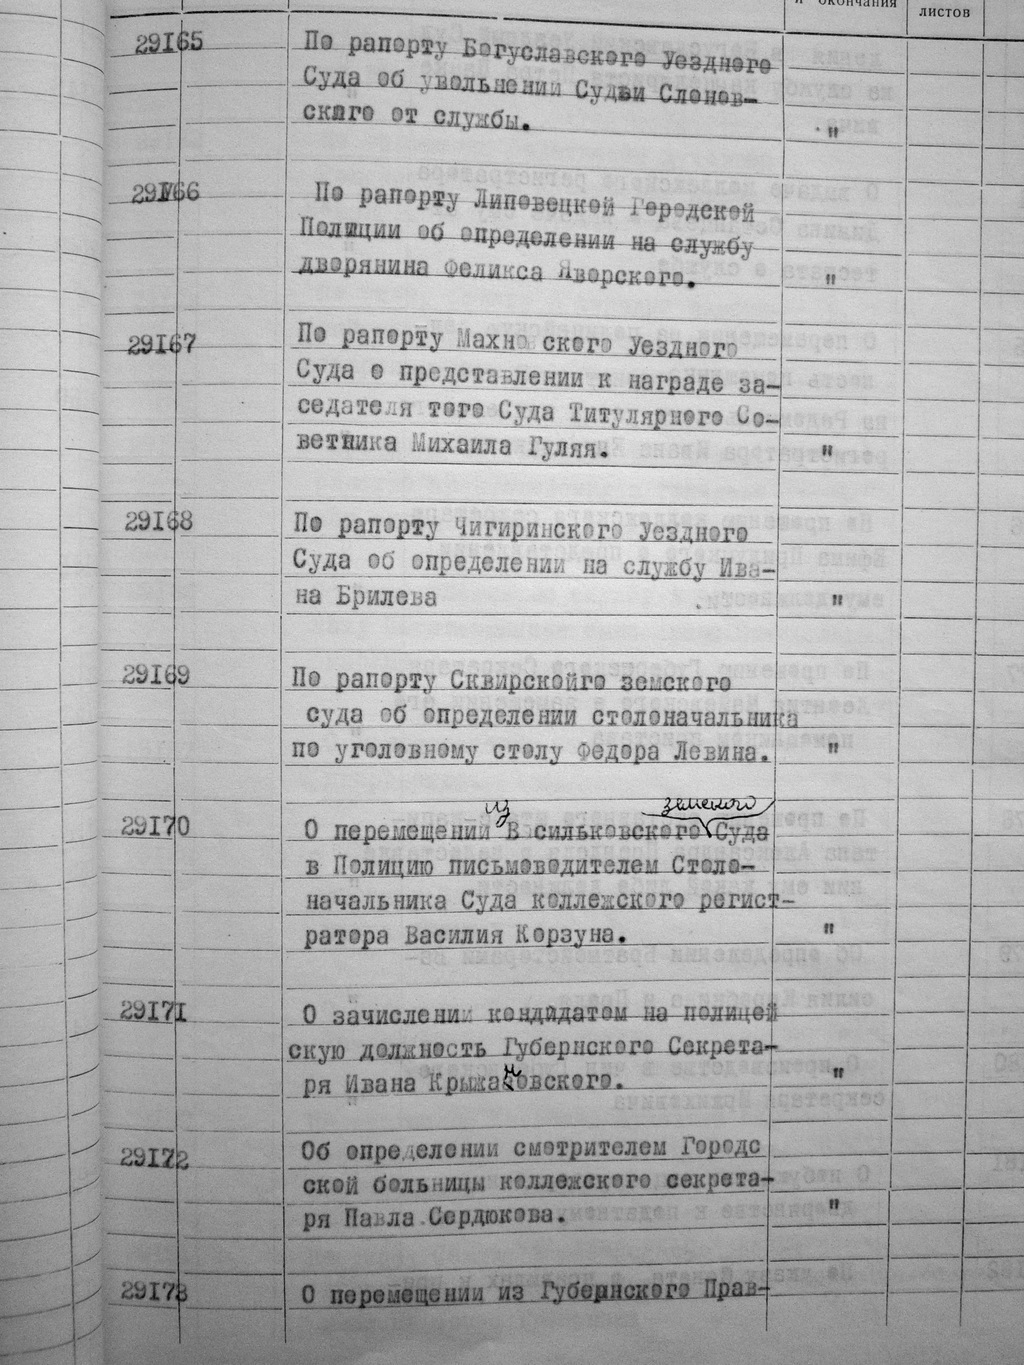 и окончания
листов
29I65
По рапорту Богуславского Уездного
Суда об увольнении Судьи Слонов-
скаго от службы.
"
29I66
По рапорту Липовецкой Городской
Полиции об определении на службу
дворянина Феликса Яворского.
"
29I67
По рапорту Махновского Уездного
Суда о представлении к награде за-
седателя того Суда Титулярного Со-
ветника Михаила Гуляя.
"
29I68
По рапорту Чигиринского Уездного
Суда об определении на службу Ива-
на Брилева
"
29I69
По рапорту Сквирскойго земского
суда об определении столоначальника
по уголовному столу Федора Левина.
"
из земского
29I70
О перемещении Васильковского Суда
в Полицию письмоводителем Столо-
начальника Суда коллежского регист-
ратора Василия Корзуна.
"
29I71
О зачислении кондидатом на полицей
скую должность Губернского Секрета-
ря Ивана Крыжановского.
"
29I72
Об определении смотрителем Городс
ской больницы коллежского секрета-
ря Павла Сердюкова.
"
29I73
О перемещении из Губернского Прав-